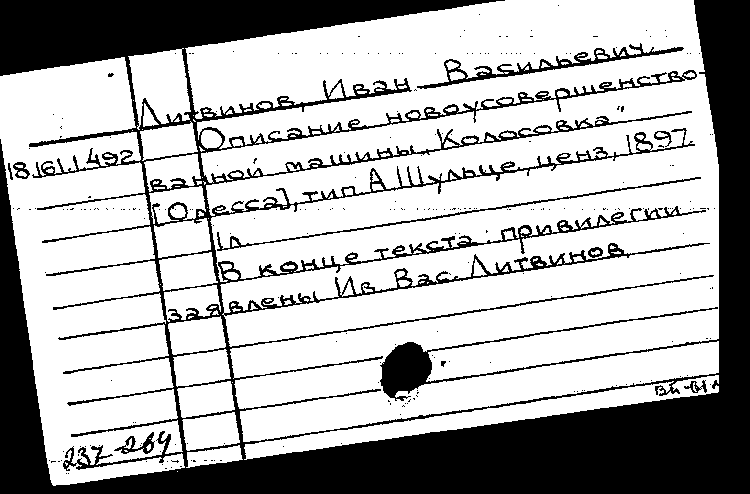 Литвинов, Иван Васильевич.
Описание новоусовершенство-
18.161.1.492
ванной машины „Колосовка"
[Одесса], тип А Шульце, ценз, 1897.
1 л
В конце текста: привилегии
заявлены Ив Вас. Литвинов
237-264